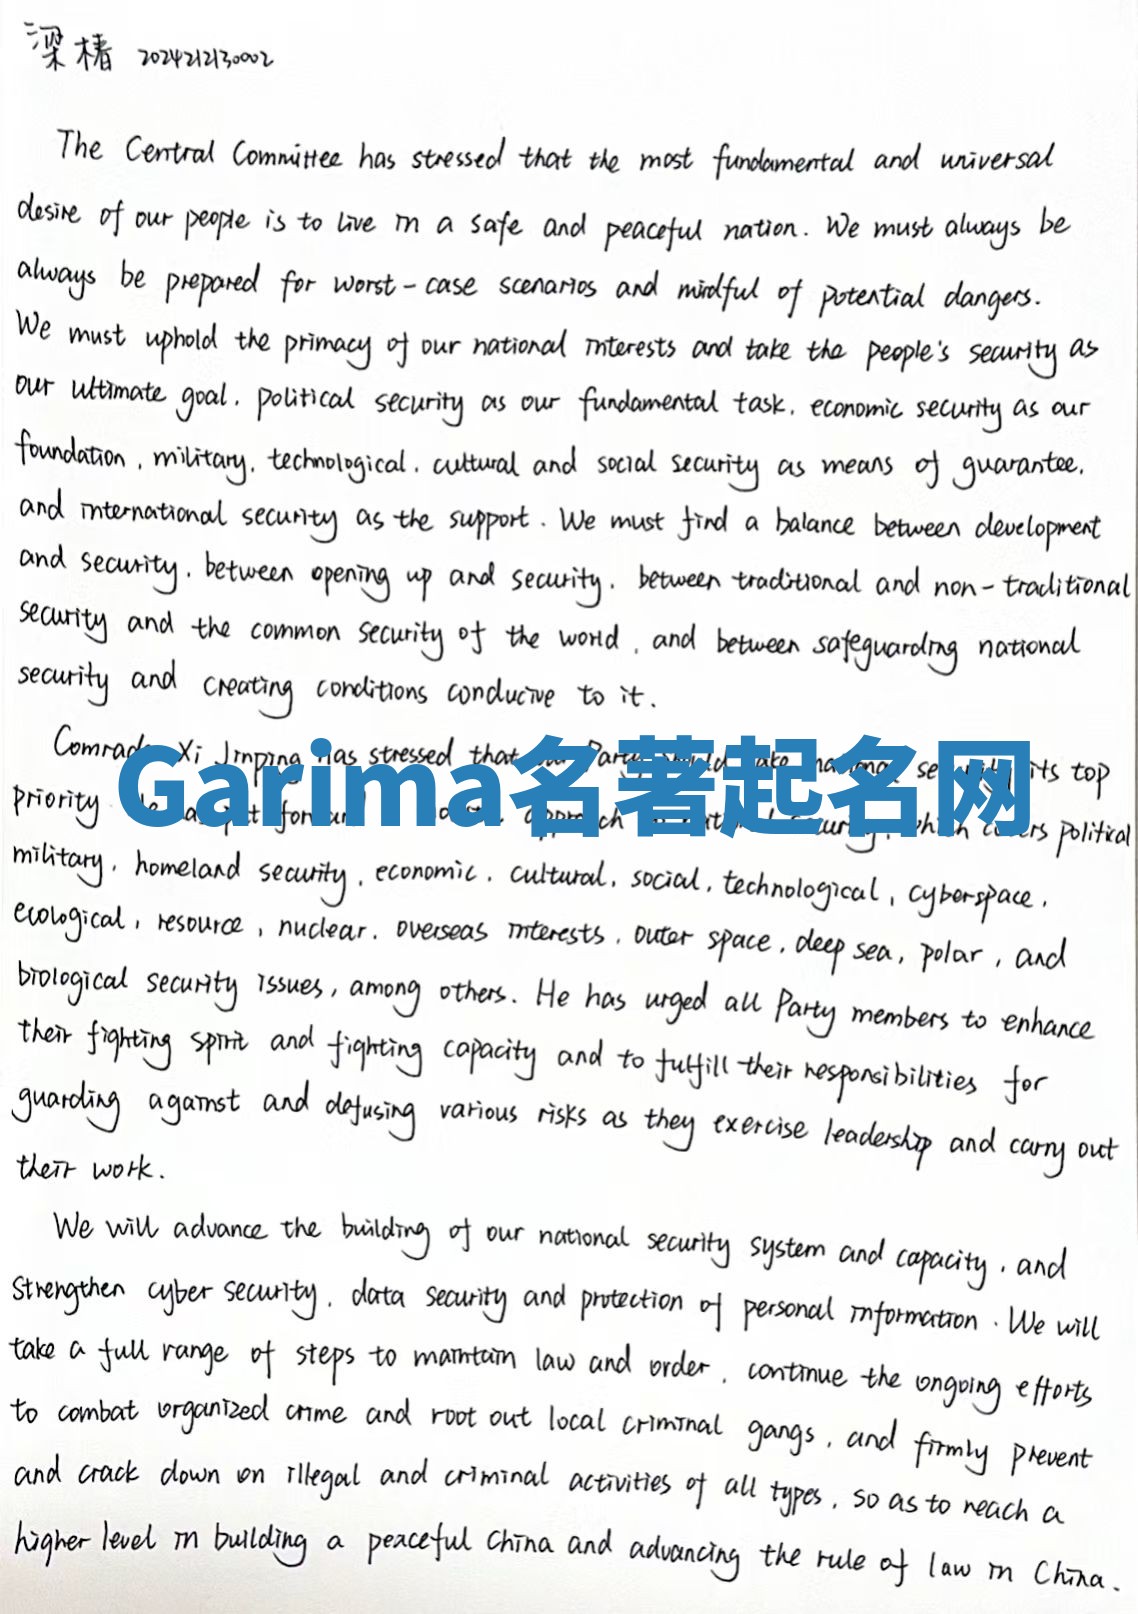 梁椿 2024212130002
The Central Committee has stressed that the most fundamental and universal
desire of our people is to live in a safe and peaceful nation. We must always be
always be prepared for worst-case scenarios and mindful of potential dangers.
We must uphold the primacy of our national interests and take the people's security as
our ultimate goal, political security as our fundamental task, economic security as our
foundation, military, technological, cultural and social security as means of guarantee,
and international security as the support. We must find a balance between development
and security, between opening up and security, between traditional and non-traditional
security and the common security of the world, and between safeguarding national
security and creating conditions conducive to it.
Comrade Xi Jinping has stressed that Party its top
Garima名著起名网
priority political
military, homeland security, economic, cultural, social, technological, cyberspace,
ecological, resource, nuclear, overseas interests, outer space, deep sea, polar, and
biological security issues, among others. He has urged all Party members to enhance
their fighting spirit and fighting capacity and to fulfill their responsibilities for
guarding against and defusing various risks as they exercise leadership and carry out
their work.
We will advance the building of our national security system and capacity, and
strengthen cyber security, data security and protection of personal information. We will
take a full range of steps to maintain law and order, continue the ongoing efforts
to combat organized crime and root out local criminal gangs, and firmly prevent
and crack down on illegal and criminal activities of all types, so as to reach a
higher level in building a peaceful China and advancing the rule of law in China.